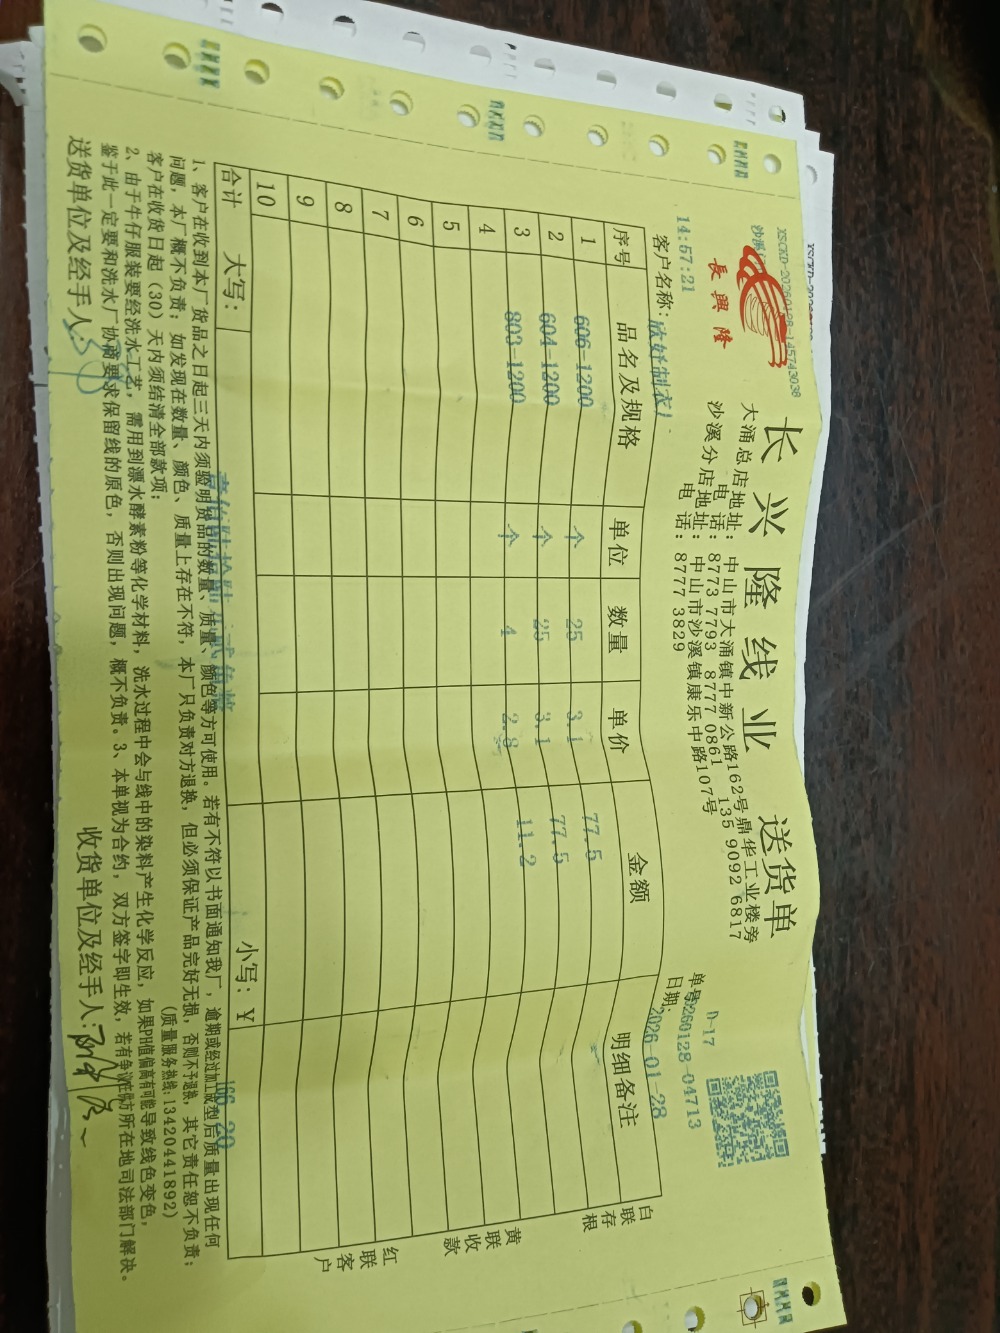 XSCKD-20260128-145743038
長興隆
长兴隆线业 送货单
大涌总店地址:中山市大涌镇中新公路162号鼎华工业楼旁
电话:8773 7793 8777 0861 135 9092 6817
沙溪分店地址:中山市沙溪镇康乐中路107号
电话:8777 3829
D-17
单号: 20260128-04713
日期: 2026-01-28
14:57:21
客户名称:欣好制衣厂
序号 品名及规格 单位 数量 单价 金额 明细备注
1 606-1200 个 25 3.1 77.5
2 604-1200 个 25 3.1 77.5
3 803-1200 个 4 2.8 11.2
4
5
6
7
8
9
10
合计 大写: 小写:¥ 166.20
白联存根
黄联收款
红联客户
1、客户在收到本厂货品之日起三天内须验明货品的数量、质量、颜色等方可使用。若有不符以书面通知我厂,逾期或经过加工成型后质量出现任何
问题,本厂概不负责;如发现在数量、颜色、质量上存在不符,本厂只负责对方退换,但必须保证产品完好无损,否则不予退换,其它责任恕不负责;
客户在收货日起(30)天内须结清全部款项;
(质量服务热线:13420441892)
2、由于牛仔服装要经洗水工艺,需用到漂水酵素粉等化学材料,洗水过程中会与线中的染料产生化学反应,如果PH值偏高有可能导致线色变色,
鉴于此一定要和洗水厂协商要求保留线的原色,否则出现问题,概不负责。3、本单视为合约,双方签字即生效,若有争议在供方所在地司法部门解决。
送货单位及经手人:
收货单位及经手人: